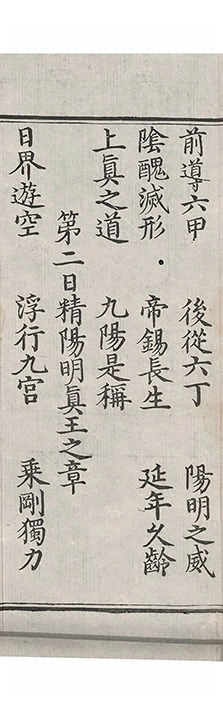 前導六甲　後從六丁　陽明之威
陰醜滅形．帝錫長生　延年久齡
上眞之道　九陽是稱
第二日精陽明眞王之章
日界遊空　浮行九宮　乘剛獨力